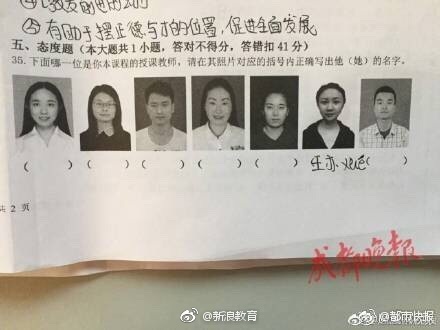 ⑤有助于摆正德与才的位置，促进全面发展
五、态度题（本大题共1小题，答对不得分，答错扣41分）
35.下面哪一位是你本课程的授课教师，请在其照片对应的括号内正确写出他（她）的名字。
（ ）（ ）（ ）（ ）（ ）王亦（ ）
共2页
成都晚报
@新浪教育 @都市快报